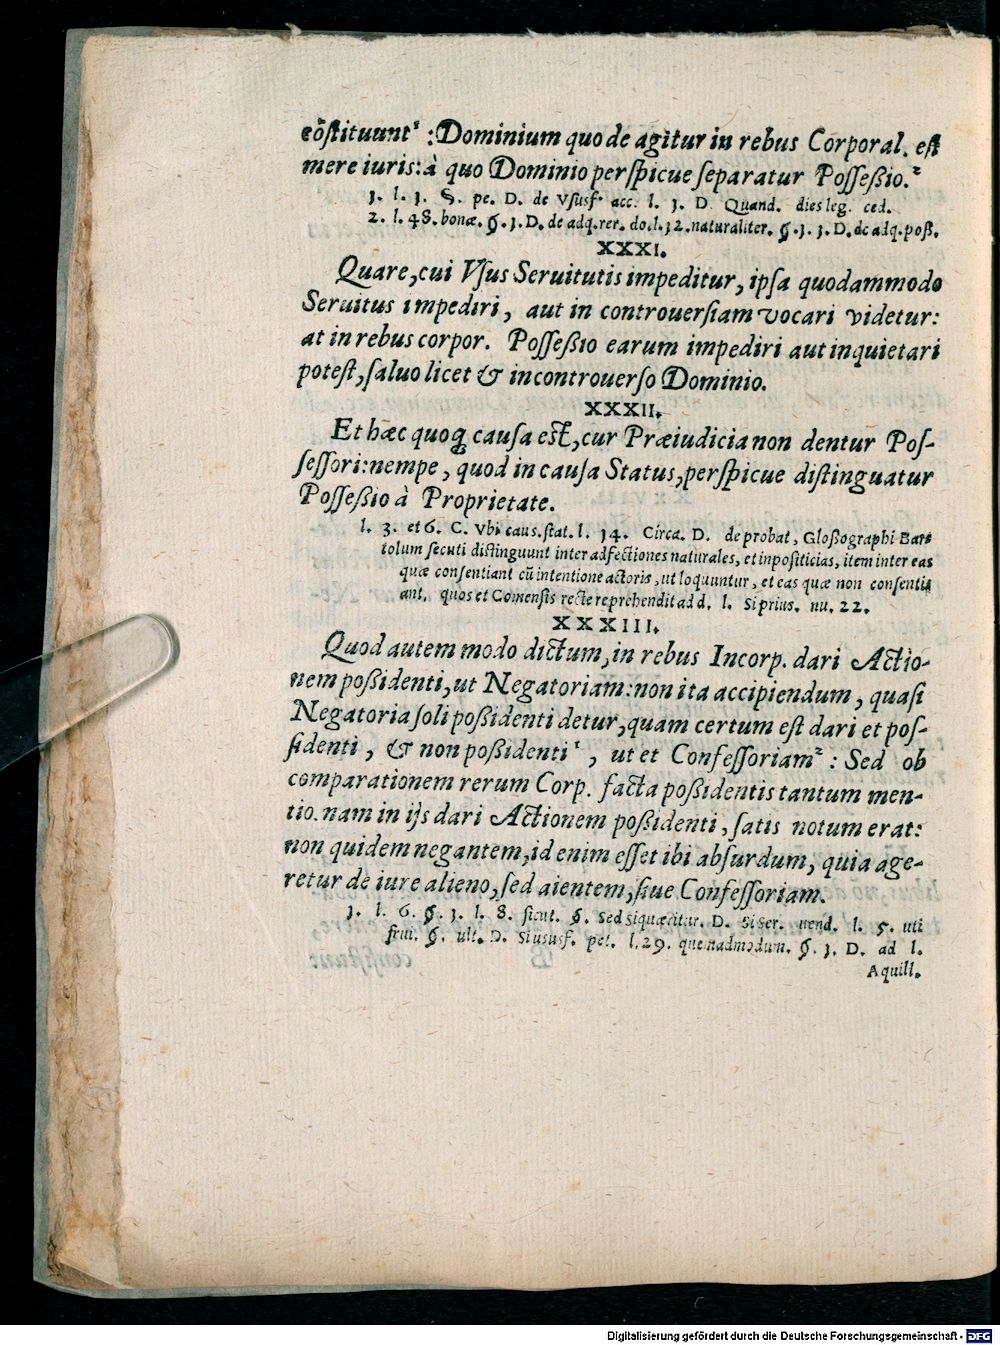 cõſtituunt¹ : Dominium quo de agitur in rebus Corporal. eſt
mere iuris: à quo Dominio perſpicue ſeparatur Poſſeßio.²
1. l. 1. §. pe. D. de Vſusf. acc. l. 1. D. Quand. dies leg. ced.
2. l. 48. bonæ. §. 1. D. de adq. rer. do. l. 12. naturaliter. §. 1. 1. D. de adq. poß.
XXXI.
Quare, cui Vſus Seruitutis impeditur, ipſa quodammodo
Seruitus impediri, aut in controuerſiam vocari videtur:
at in rebus corpor. Poſſeßio earum impediri aut inquietari
poteſt, ſaluo licet & incontrouerſo Dominio.
XXXII.
Et hæc quoq; cauſa eſt, cur Præiudicia non dentur Poſ-
ſeſſori: nempe, quod in cauſa Status, perſpicue diſtinguatur
Poſſeßio à Proprietate.
l. 3. et 6. C. Vbi cauſ. ſtat. l. 14. Circa. D. de probat, Gloßographi Bar-
tolum ſecuti diſtinguunt inter adfectiones naturales, et inpoſiticias, item inter eas
quæ conſentiant cū intentione actoris, ut loquuntur, et eas quæ non conſenti-
ant. quos et Comenſis recte reprehendit ad d. l. Si prius. nu. 22.
XXXIII.
Quod autem modo dictum, in rebus Incorp. dari Actio-
nem poßidenti, ut Negatoriam: non ita accipiendum, quaſi
Negatoria ſoli poßidenti detur, quam certum eſt dari et poſ-
ſidenti, & non poßidenti¹, ut et Confeſſoriam² : Sed ob
comparationem rerum Corp. facta poßidentis tantum men-
tio. nam in ijs dari Actionem poßidenti, ſatis notum erat:
non quidem negantem, id enim eſſet ibi abſurdum, quia age-
retur de iure alieno, ſed aientem, ſiue Confeſſoriam.
1. l. 6. §. 1. l. 8. ſicut. §. Sed ſi quæritur. D. Si ſer. uend. l. 5. uti
frui. §. ult. D. Si ususf. pet. l. 29. quemadmodum. §. 1. D. ad l.
Aquill.
Digitalisierung gefördert durch die Deutsche Forschungsgemeinschaft - DFG